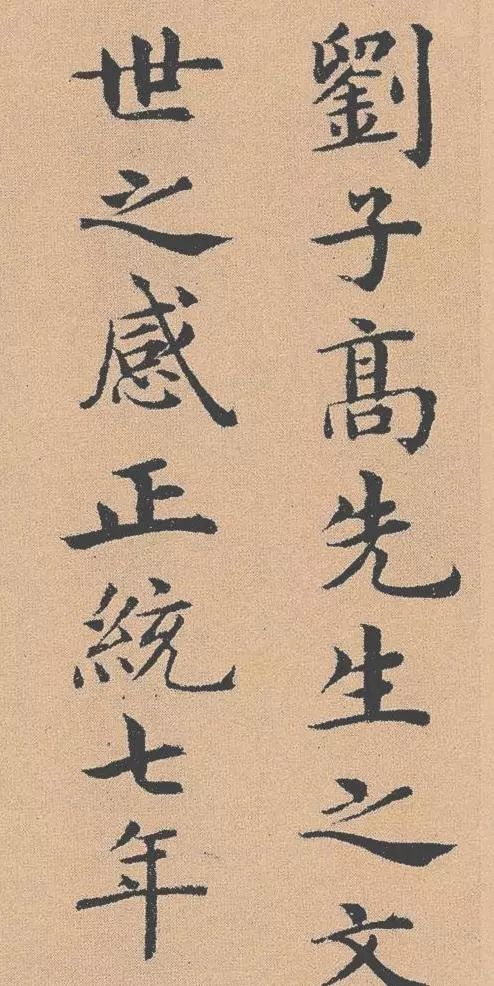 劉子髙先生之文
世之感正統七年